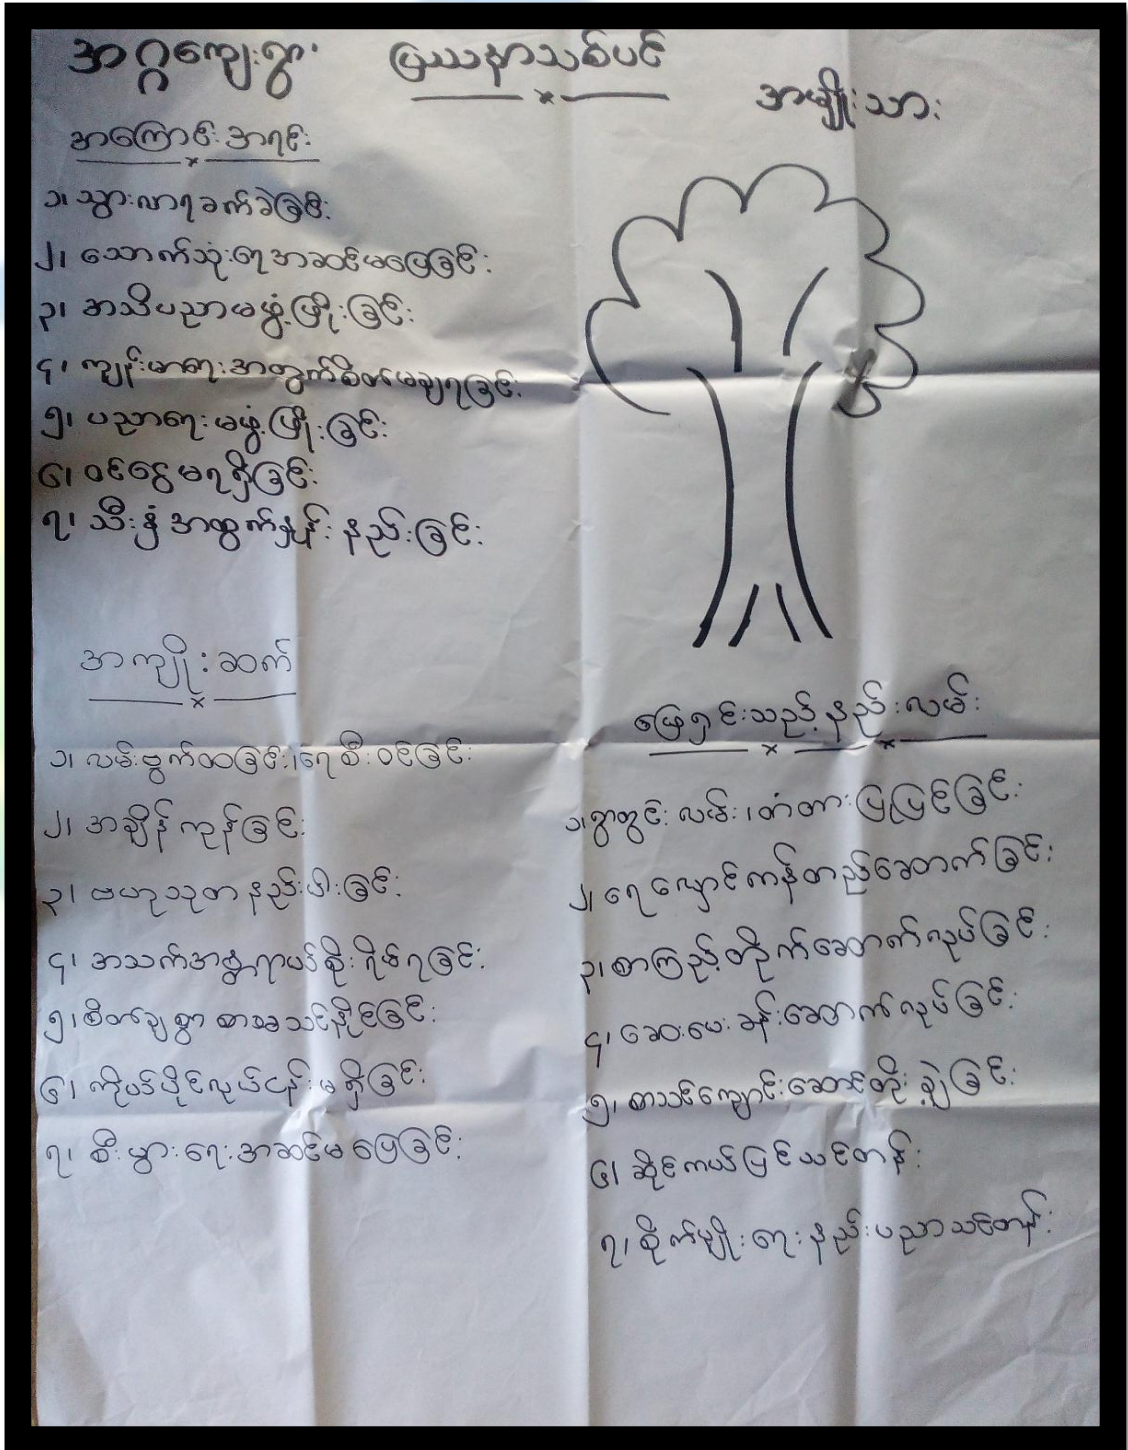 အဂ္ဂကျေးရွာ
ပြဿနာသစ်ပင်
အမျိုးသား
အကြောင်းအရင်း
၁၊ သွားလာရခက်ခဲခြင်း
၂၊ သောက်သုံးရေအဆင်မပြေခြင်း
၃၊ အသိပညာမဖွံ့ဖြိုးခြင်း
၄၊ ကျန်းမာရေးအတွက်စိတ်မချရခြင်း
၅၊ ပညာရေးမဖွံ့ဖြိုးခြင်း
၆၊ ဝင်ငွေမရရှိခြင်း
၇၊ သီးနှံအထွက်နှုန်းနည်းခြင်း
အကျိုးဆက်
၁၊ လမ်းဗွက်ထခြင်း၊ရေစီးဝင်ခြင်း
၂၊ အချိန်ကုန်ခြင်း
၃၊ ဗဟုသုတနည်းပါးခြင်း
၄၊ အသက်အန္တရာယ်စိုးရိမ်ရခြင်း
၅၊ စိတ်ချစွာစာမသင်နိုင်ခြင်း
၆၊ ကိုယ်ပိုင်လုပ်ငန်းမရှိခြင်း
၇၊ စီးပွားရေးအဆင်မပြေခြင်း
ဖြေရှင်းသည့်နည်းလမ်း
၁၊ ရွာတွင်းလမ်း၊တံတားပြုပြင်ခြင်း
၂၊ ရေလှောင်ကန်တည်ဆောက်ခြင်း
၃၊ စာကြည့်တိုက်ဆောက်လုပ်ခြင်း
၄၊ ဆေးပေးခန်းဆောက်လုပ်ခြင်း
၅၊ စာသင်ကျောင်းဆောင်တိုးချဲ့ခြင်း
၆၊ ဆိုင်ကယ်ပြင်သင်တန်း
၇၊ စိုက်ပျိုးရေးနည်းပညာသင်တန်း